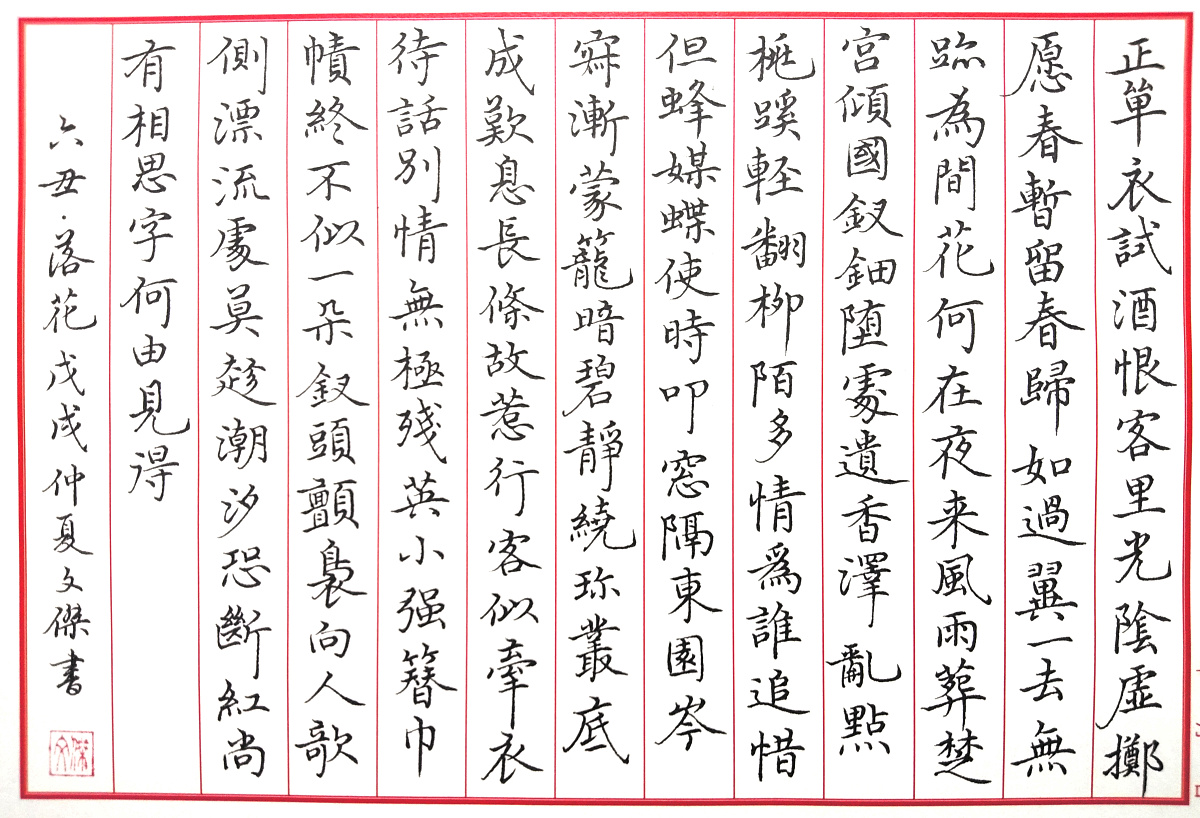 正單衣試酒恨客里光陰虛擲
愿春暫留春歸如過翼一去無
跡為問花何在夜来風雨葬楚
宮傾國釵鈿堕處遺香澤亂點
桃蹊輕翻柳陌多情為誰追惜
但蜂媒蝶使時叩窓隔東園岑
寂漸蒙籠暗碧靜繞珎叢底
成歎息長條故惹行客似牽衣
待話別情無極殘英小强簪巾
幘終不似一朵釵頭顫裊向人欹
側漂流處莫趂潮汐恐斷紅尚
有相思字何由見得
六丑·落花戊戌仲夏文傑書
文傑